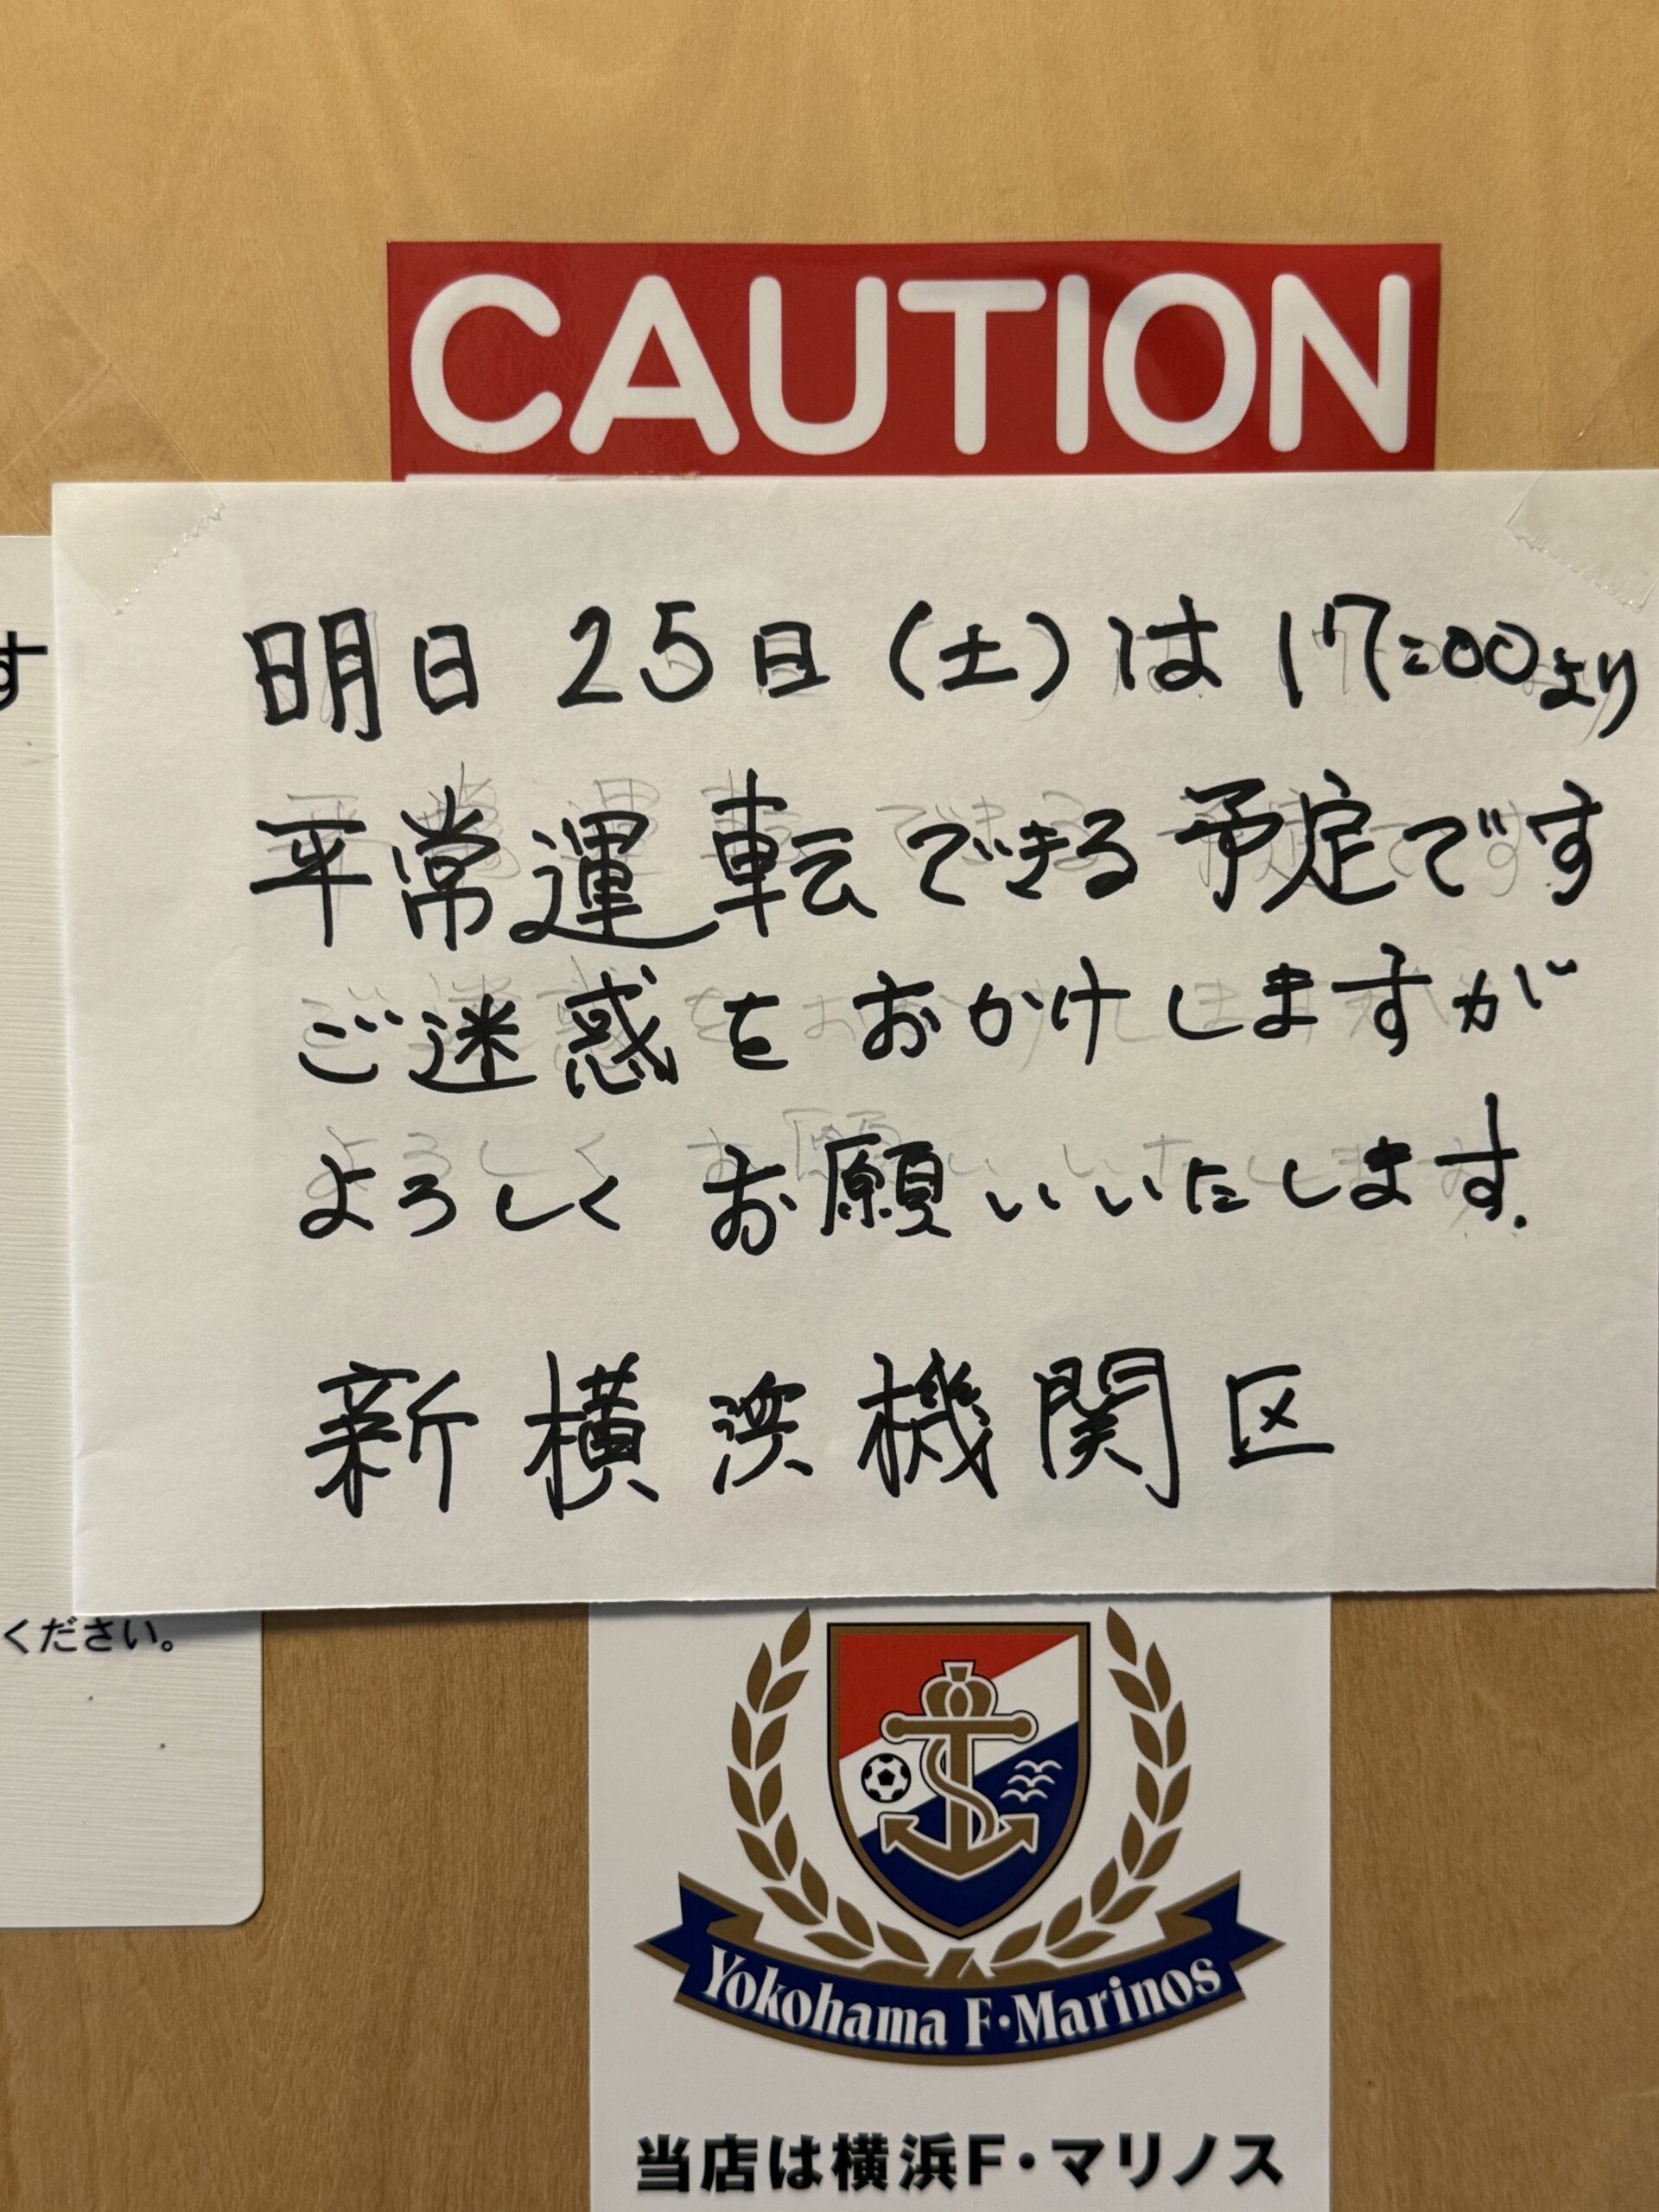 CAUTION
す
明日 25日(土)は 17:00より
平常運転できる予定です
ご迷惑をおかけしますが
よろしく お願いいたします.
新横浜機関区
ください。
Yokohama F·Marinos
当店は横浜F・マリノス